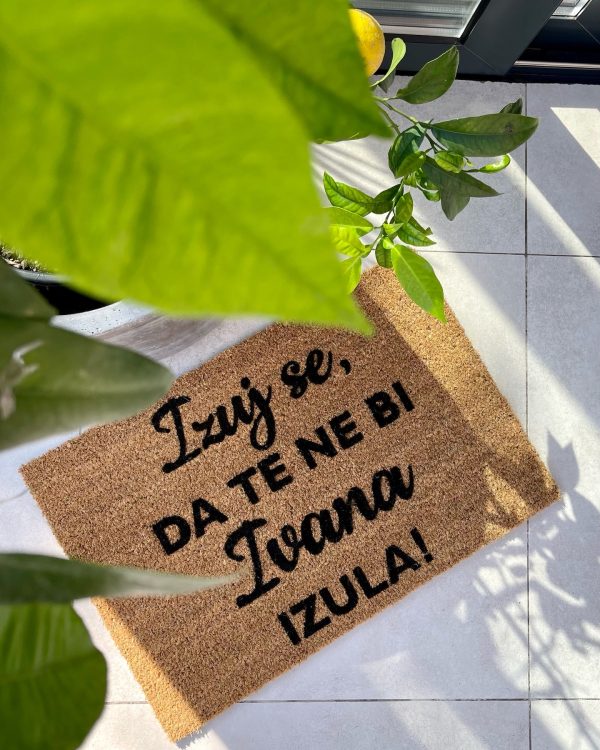 Izuj se,
DA TE NE BI
Ivana
IZULA!